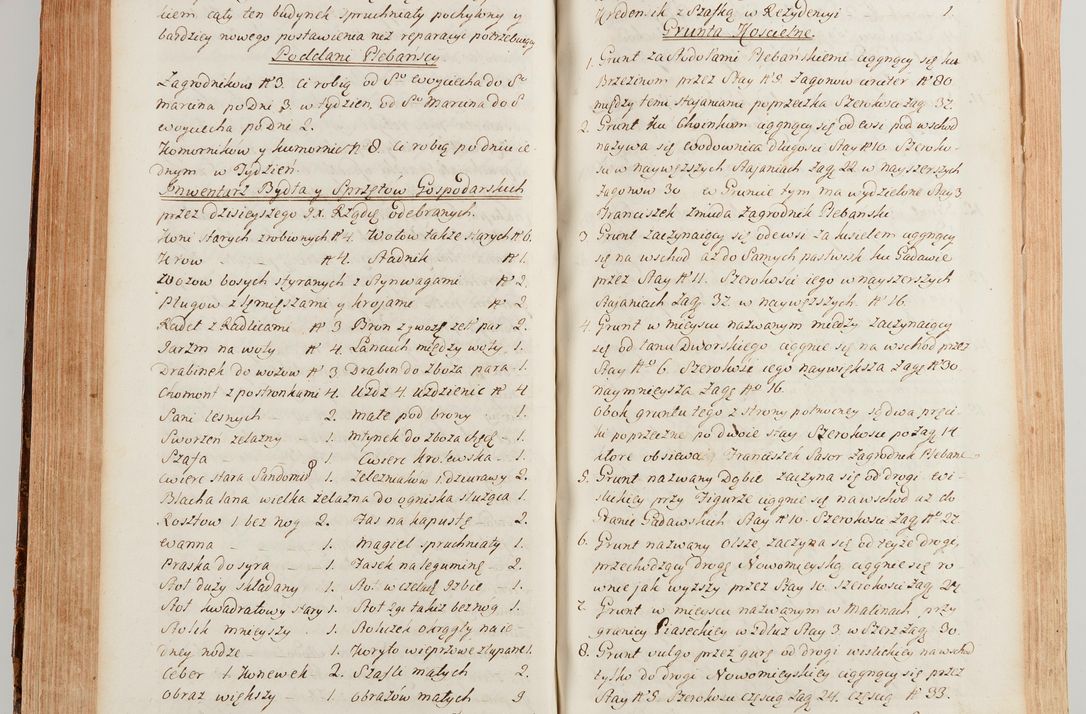 kiem cały ten budynek spruchniały pochylony y
bardziey nowego postawienia niż reparacyi potrzebuiący
Poddani Plebańscy
Zagrodnikow No 3. Ci robią od So Woyciecha do So
Marcina po dni 3. w tydzien, od So Marcina do S
Woyciecha po dni 2.
Komornikow y komornic No 8 ci robią po dniu ie-
dnym w Tydzień.
Inwentarz Bydła y Sprzętow Gospodarskich
przez dzisieyszego Jx. Rządcę odebranych.
Koni starych zrobionych No 4. Wołow także starych No 6.
Krow - No 4. Stadnik No 1.
Wozow bosych styranych z Stynwagami No 2.
Pługow z Lemięszami y krojami No 2
Radeł z Radlicami No 3 Bron z gwoźź żel: par 2.
Jarzm na woły No 4. Łancuch między woły 1.
Drabinek do wozow No 3 Drabin do zboża para 1.
Chomont z postronkami 4. Uźdź 4. Uździenic No 4
Sani lesnych - 2. małe pod brony - 1.
Sworzeń żelazny - 1. Młynek do zboża - 1.
Szafa - 1. Cwierc krolewska - 1.
Cwierc stara Sandomir 1. Żelezniakow 1 dziurawy 2.
Blacha lana wielka żelazna do ogniska służąca 1.
Rosztow 1 bez nog 2. Fas na kapustę - 2.
Wanna - 1. Magiel spruchniały 1.
Praska do syra - 1. Fasek na leguminę - 2.
Stoł duży składany 1. Stoł w czelad: Izbie - 1.
Stoł kwadratowy stary 1. Stoł 2gi takiż bez nog 1.
Stolik mnieyszy - 1. Stoliczek okrągły na ie-
dney nodze - 1. Koryto wieprzowe złupane 1.
Ceber 1 Konewek - 2. Szafli małych 2.
Obraz większy - 1. Obrazow małych 9
Kredensik z Szafką w Rezydencyi 1.
Grunta Kościelne.
1. Grunt za Stodołami Plebańskiemi ciągnący się ku
Brzezinom przez Stay No 8. Zagonow circiter No 80.
między temi stajaniami poprzeczka Szerokosci zag: 32.
2. Grunt ku Choinkom ciągnący się od wsi pod wschod
nazywa się Wodownica długosci Stay No 10. Szeroko-
sci w naywęższych Stajaniach zag: 22 w nayszerszych
zagonow 30 w Gruncie tym ma wydzielone Stay 3
Franciszek Zmuda Zagrodnik Plebański
3 Grunt zaczynaiący się od wsi za kosciełem ciągnący
się na wschod aż do samych pastwisk ku Gadawie
przez Stay No 11. Szerokosci iego w nayszerszych
Stajaniach zag: 32 w naywęższych. No 16.
4. Grunt w mieyscu nazwanym między zaczynaiący
się od łanu Dworskiego ciągnie się na wschod przez
Stay No 6. Szerokosci iego naywiększa zag: No 30.
naymnieysza zag: No 16.
Obok gruntu tego z strony połnocney są dwa pręci-
ki poprzeczne po dwoie stay Szerokosci po zag: 14
ktore obsiewa Franciszek Sasor Zagrodnik Pleban:
5. Grunt nazwany Dąbie zaczyna się od drogi Wi-
slickiey przy Figurze ciągnie się na wschod aż do
Granic Gadawskich Stay No 10. Szerokosci zag: No 27.
6. Grunt nazwany Olsze, zaczyna się od teyże drogi,
przechodzący drogę Nowomieyską ciągnie się ro
wnie jak wyższy przez Stay 10. Szerokosci zag: 24
7. Grunt w mieyscu nazwanym w Malinach przy
granicy Piaseckiey w zdłuż Stay 3. w Szerz zag: 30.
8. Grunt vulgo przez gurę od drogi wislickiey na wschod
tylko do drogi Nowomieyskiey ciągnący się przez
Stay No 8. Szerokosci częscią zag: 24. częscią No 33.